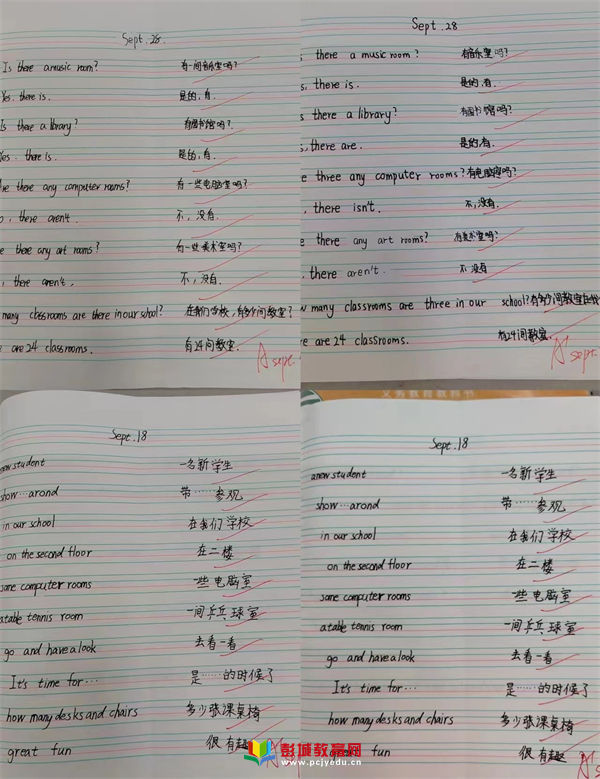 Sept. 28.
Is there a music room? 有一间音乐室吗?
Yes. there is. 是的,有.
Is there a library? 有图书馆吗?
Yes. there is. 是的,有.
re there any computer rooms? 有一些电脑室吗?
o, there aren't. 不,没有.
e there any art rooms? 有一些美术室吗?
, there aren't. 不,没有.
many classrooms are there in our school? 在我们学校,有多少间教室?
e are 24 classrooms. 有24间教室.
A sept.
Sept. 28
there a music room? 有音乐室吗?
s. there is. 是的.有.
s there a library? 有图书馆吗?
s, there are. 是的.有.
e three any computer rooms? 有电脑室吗?
, there isn't. 不,没有.
e there any art rooms? 有美术室吗?
, there aren't. 不 没有
w many classrooms are three in our school? 有多少间教室在
e are 24 classrooms. 有24间教室.
A sept.
Sept. 18
a new student 一名新学生
show...arond 带……参观
in our school 在我们学校
on the second floor 在二楼
some computer rooms 一些电脑室
a table tennis room 一间乒乓球室
go and have a look 去看一看
It's time for... 是……的时候了
how many desks and chairs 多少张课桌椅
great fun 很有趣
义务教育教科书
Sept. 18
a new student 一名新学生
show...arond 带……参观
in our school 在我们学校
on the second floor 在二楼
some computer rooms 一些电脑室
a table tennis room 一间乒乓球室
go and have a look 去看一看
It's time for... 是……的时候了
how many desks and chairs 多少张课桌椅
great fun 很有趣
彭城教育网
www.pcjyedu.cn